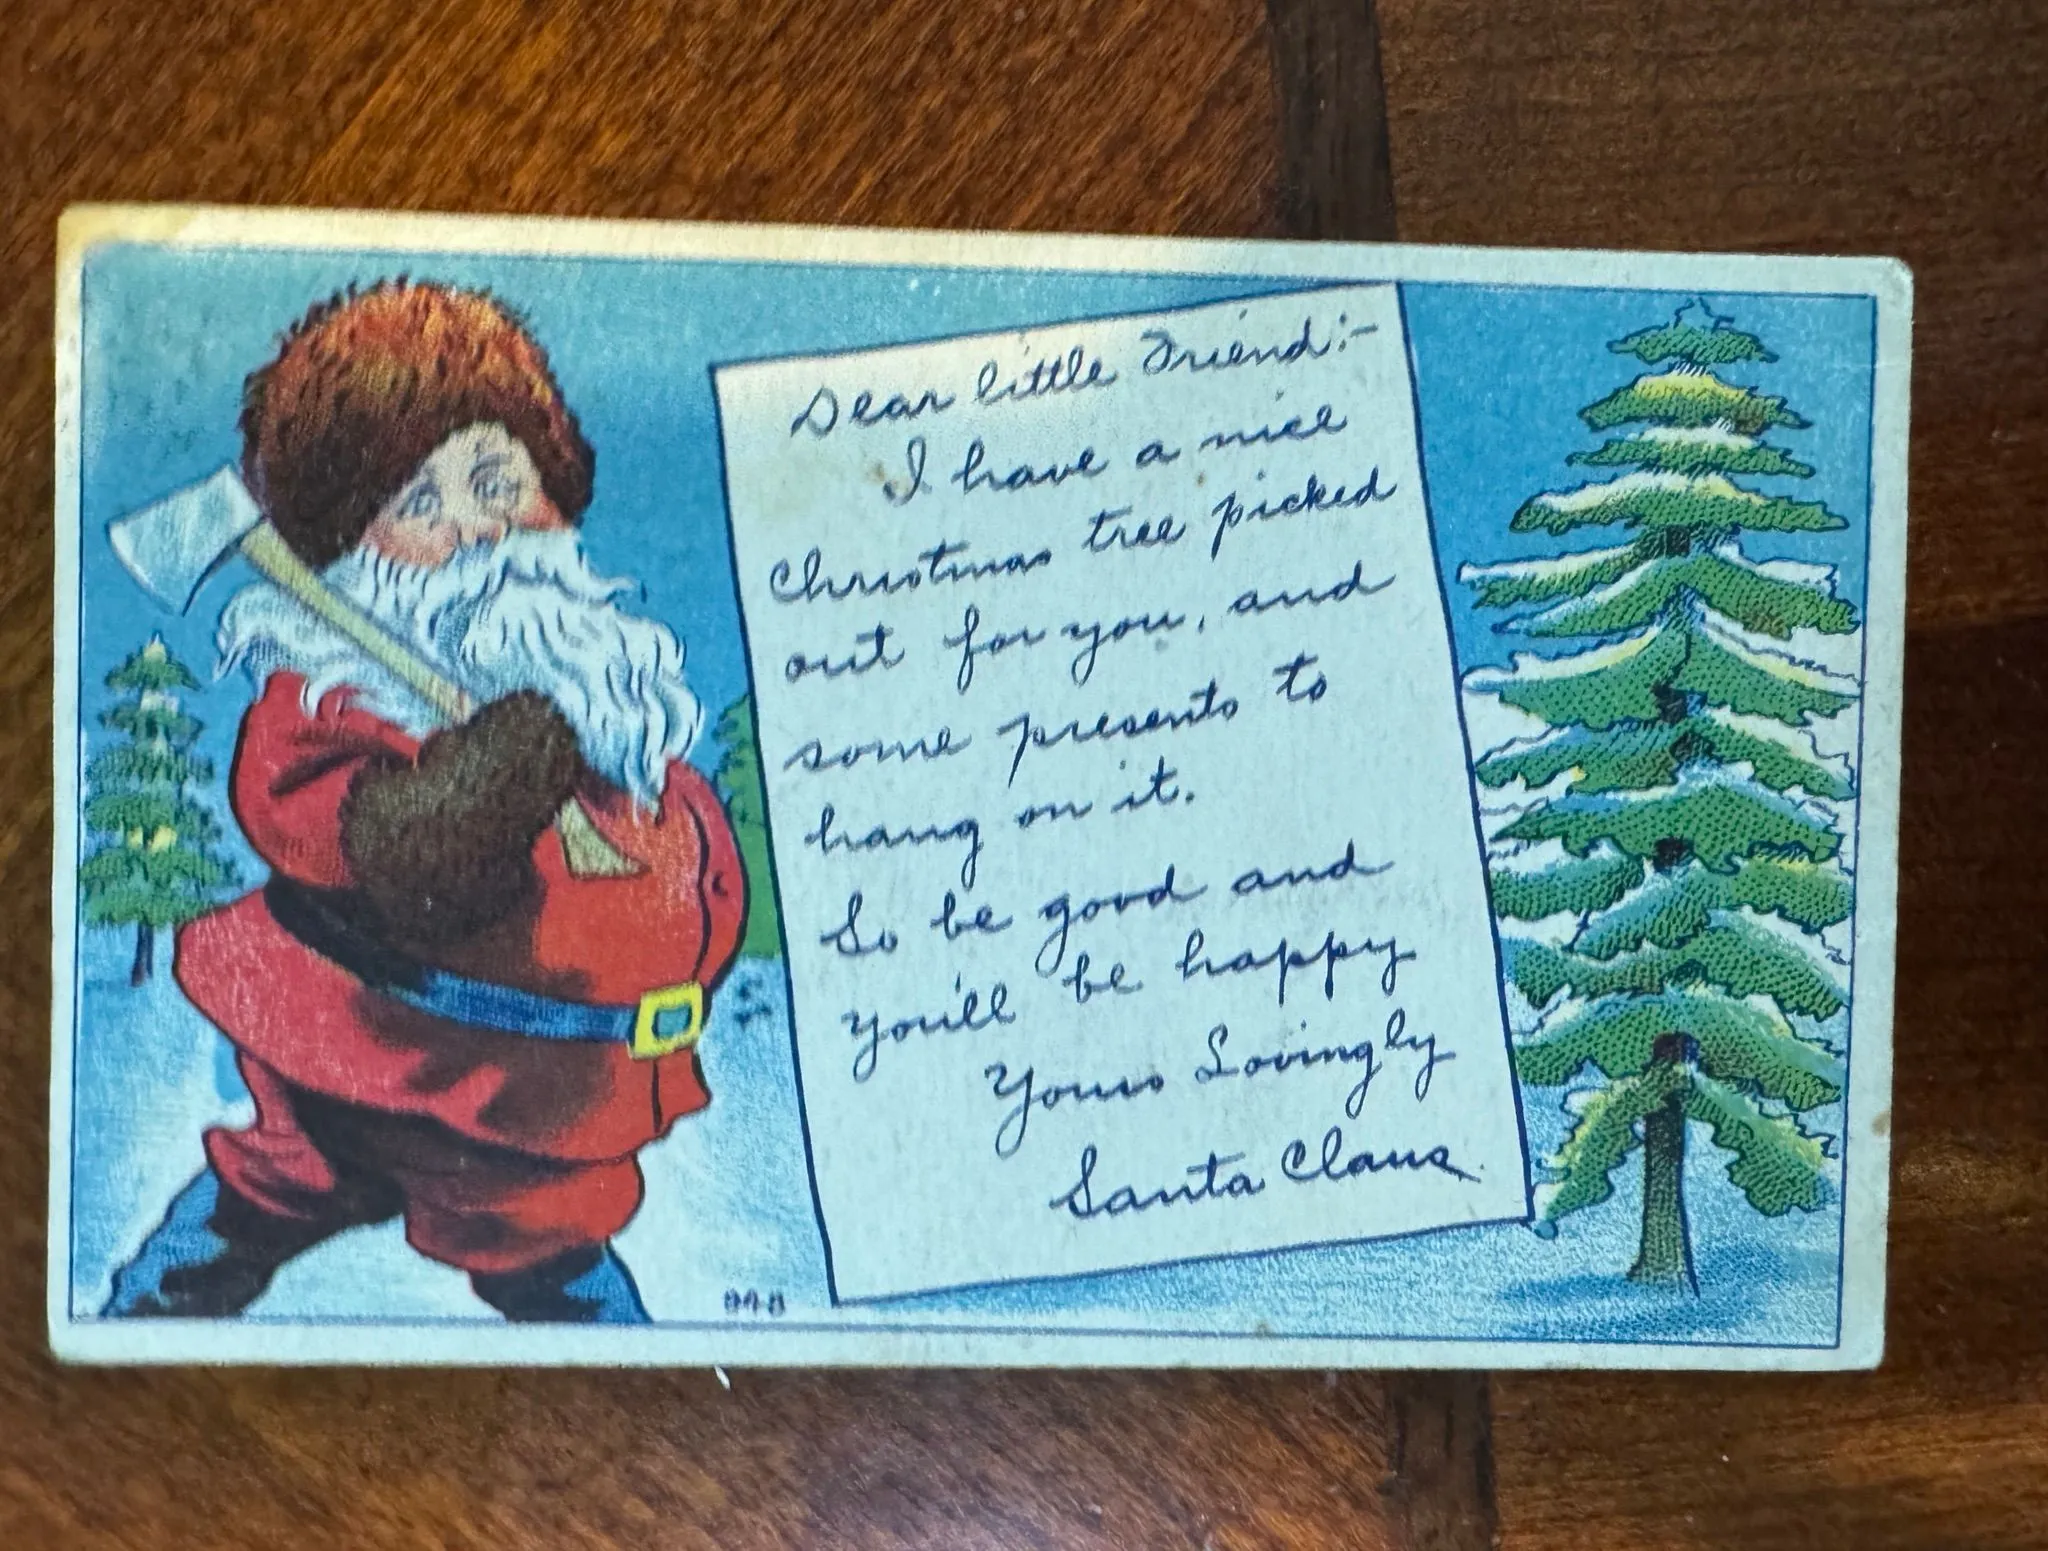 Dear little Friend:-
I have a nice
Christmas tree picked
out for you, and
some presents to
hang on it.
So be good and
you'll be happy
Yours Lovingly
Santa Claus.